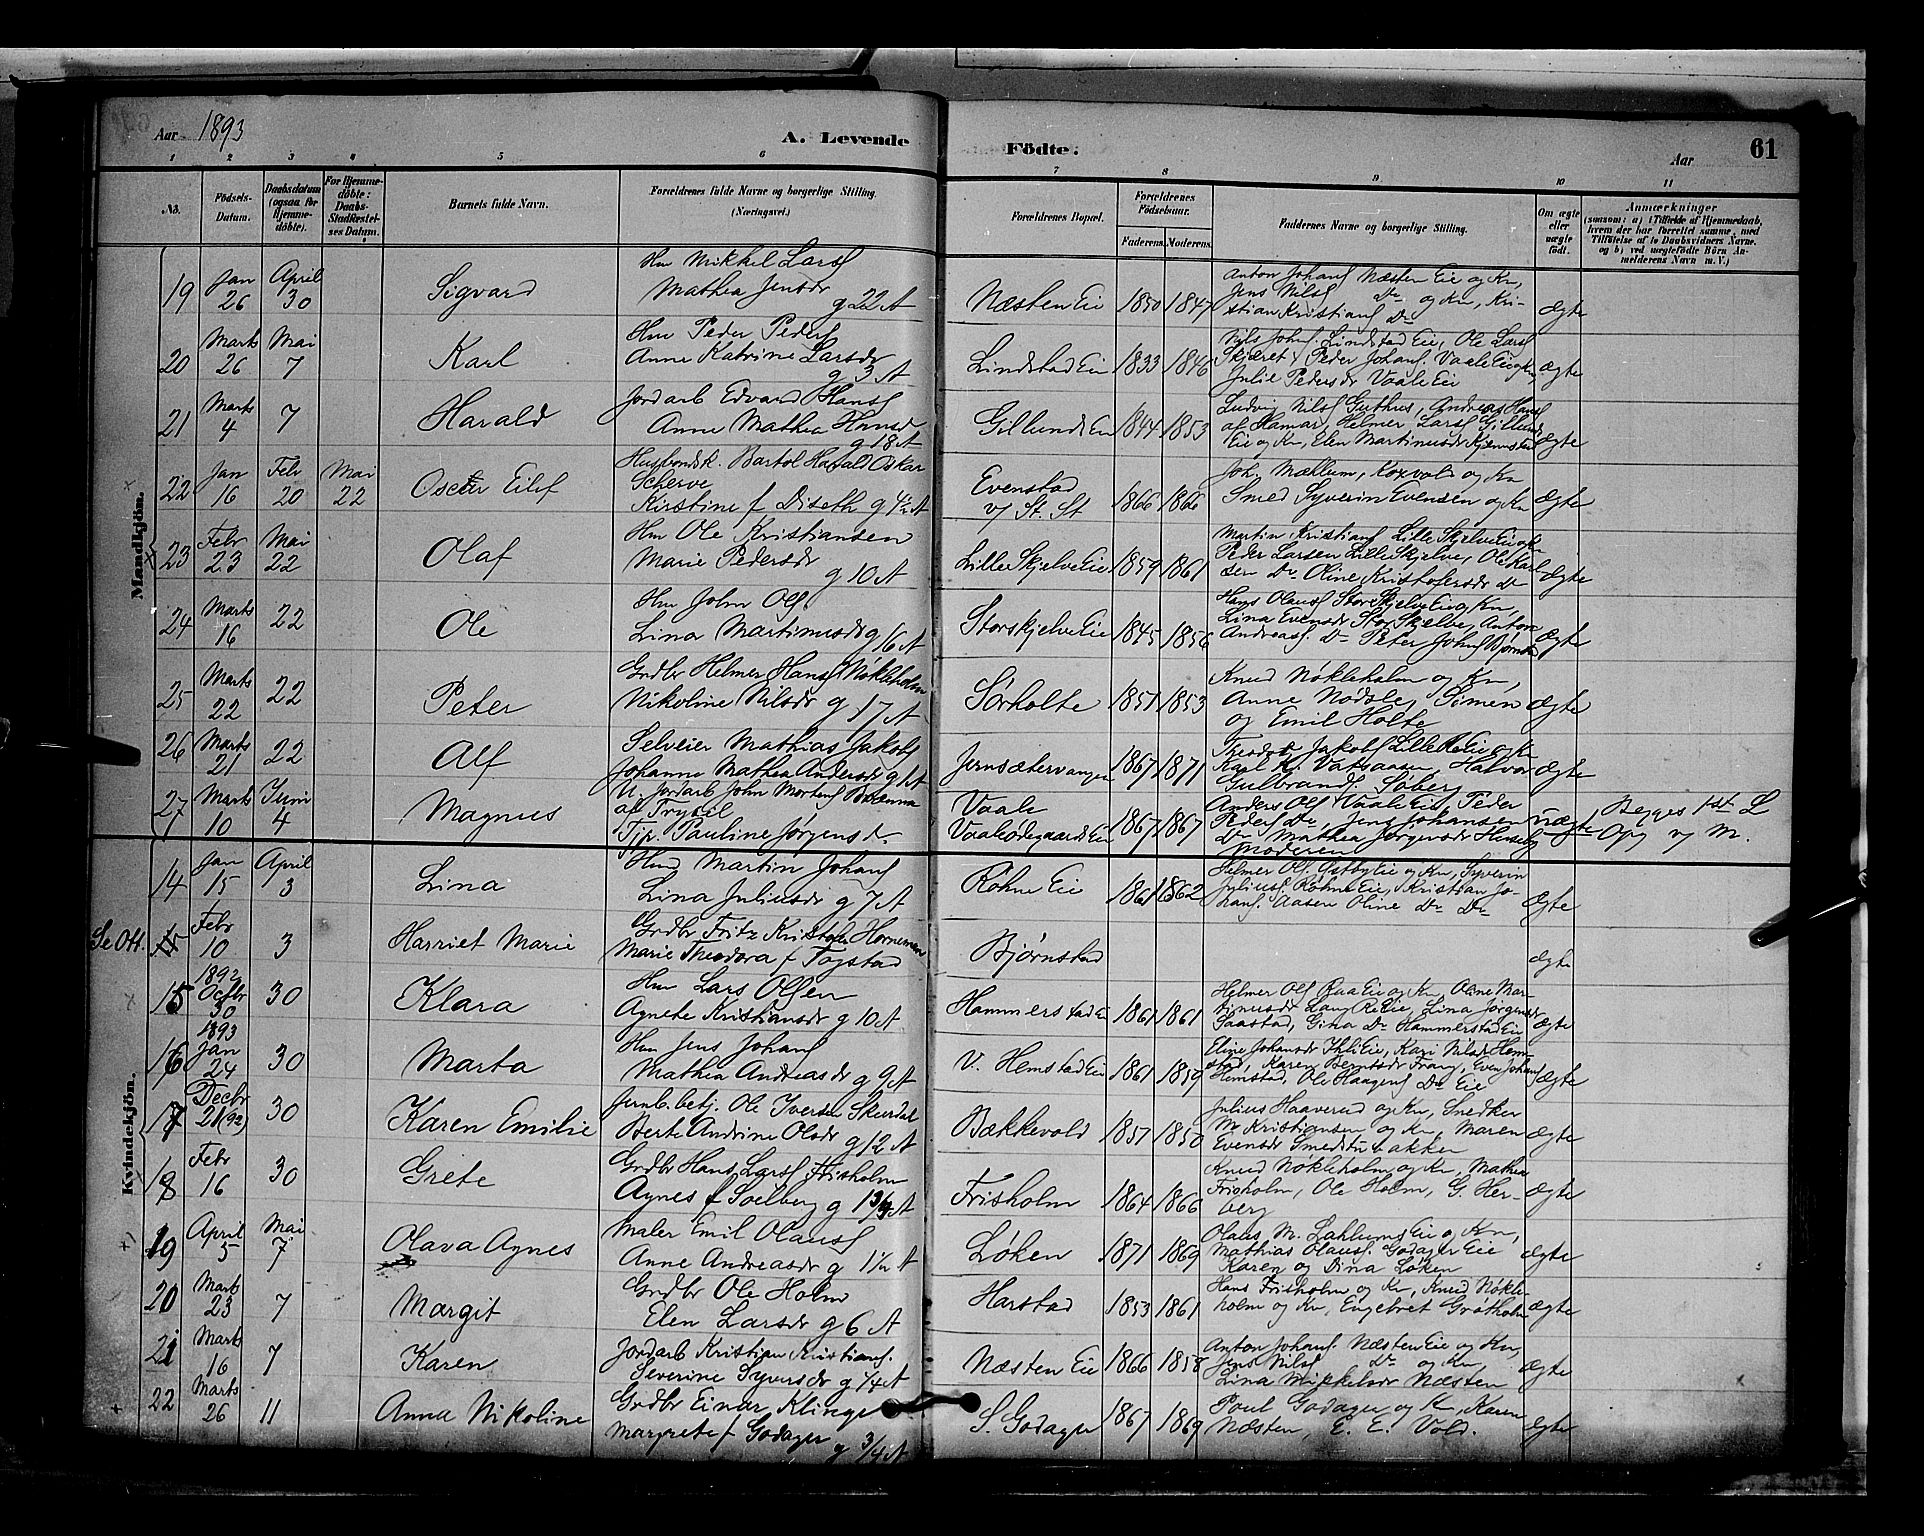 Aar 1893 A. Levende Födte. Aar 61
1 2 3 4 5 6 7 8 9 10 11
No. Födsels-Datum. Daabsdatum (ogsaa for Hjemmedöbte). For Hjemmedöbte: Daabs-Stadfæstelses Datum. Barnets fulde Navn. Forældrenes fulde Navne og borgerlige Stilling. (Næringsvei.) Forældrenes Bopæl. Forældrenes Födselsaar. Faderens. Moderens. Faddernes Navne og borgerlige Stilling. Om ægte eller uægte født. Anmærkninger (saasom: a) i Tilfælde af Hjemmedaab, hvem der har forrettet samme, med Tilføielse af to Daabsvidners Navne, og b) ved uægtefødte Børn Anmelderens Navn m. V.)
Mandkjön.
19 Jan 26 April 30 Sigvard Hm Mikkel Larsf
Mathea Jensdr g 22 A Næsten Eie 1850 1847 Anton Johansf Næsten Eie og Kn,
Jens Nilsf Do og Kn, Kri-
stian Kristiansf Do ægte
20 Marts 26 Mai 7 Karl Hm Peder Pedersf
Anne Katrine Larsdr
g 3 A Lindstad Eie 1833 1846 Nils Johsf. Lindstad Eie, Ole Larsf
Skjæret, Peder Johansf. Vaale Eie
Julie Pedersdr Vaale Eie ægte
21 Marts 4 7 Harald Jordarb Edvard Hansf
Anne Mathea Hansdr
g 18 A Gillund Eie 1844 1853 Ludvig Nilsf Guthus, Andreas Hansf
af Hamar, Helmer Larsf Gillund
Eie og Kn, Elen Martinusdr ægte
22 Jan 16 Febr 20 Mai 22 Oscar Eilef Husbondsk. Bartol Harald Oskar
Scherve
Kirstine f Diseth g 4½ A Evenstad
v/ St. St 1866 1866 Joh. Mæhlum, Koxvold og Kn
Smed Syverin Evensen og Kn ægte
23 Febr 23 Mai 22 Olaf Hm Ole Kristiansen
Marie Pedersdr
g 10 A Lille Skjelve Eie 1859 1861 Martin Kristiansf Lille Skjelve Eie
Peder Larsen Lille Skjelve, Ole Karl
sen Do Oline Kristofersdr Do ægte
24 Marts 16 22 Ole Hm John Olsf
Lina Martinusdr g 16 A Storskjelve Eie 1845 1856 Hans Olausf Storskjelve Eie og Kn,
Lina Evensdr Stor Skjelve, Anton
Andreasf. Do Peter Johnsf ægte
25 Marts 22 22 Peter Grdbr Helmer Hansf Nökleholm
Nikoline Nilsdr g 17 A Sörholte 1851 1853 Knud Nökleholm og Kn,
Anne Nodole, Simen
og Emil Holte ægte
26 Marts 21 22 Alf Selveier Mathias Jakobsf
Johanne Mathea Andersdr g 1 A Jernsætervangen 1867 1871 Jakobsf
Karl K. Vatsaasen, Halvor
Gulbrandsf. Soberg ægte
27 Marts 10 Juni 4 Magnus U. Jordarb John Mortensf Brænna
af Trysil
Tjp. Pauline Jørgensdr Vaale
Vaaleødegaards Eie 1867 1867 Anders Olsf Vaale Eie, Peder
Pedersf Do, Jens Johansen
Do Mathea Jørgensdr
Moderen uægte Begges 1st L
Opg v/ M.
Kvindekjön.
14 Jan 15 April 3 Lina Hmd Martin Johansf
Lina Juliusdr g 7 A Røhne Eie 1861 1862 Helmer Olsf. Østby Eie og Kn, Syverin
Juliusf. Røhne Eie, Kristian Jo-
hansf. Aasen Oline Do Do ægte
Se Ott. 15 Febr 10 3 Harriet Marie Grdbr Fritz Kristofer Hornemann
Marie Theodora f Togstad Bjørnstad ægte
15 1892 Octbr 30 30 Klara Hm Lars Olsen
Agnete Kristiansdr g 10 A Hammerstad Eie 1861 1861 Helmer Olsf Eie og Kn Oline Mar-
tinusdr Eie, Lina Jørgensdr
Saastad, Gina Do Hammerstad Eie ægte
16 1893 Jan 24 30 Marta Hm Jens Johansf
Mathea Andreasdr g 9 A V. Hemstad Eie 1861 1859 Eline Johansdr Ihle Eie, Kari Nilsdr Hem-
stad, Karen Berntsdr Frang, Even Johansf
Hemstad, Ole Haagensf Do Eie ægte
17 Decbr 21 (92) 30 Karen Emilie Jernb.betj. Ole Iversen Skurdal
Berte Andrine Olsdr g 12 A Bækkevold 1857 1850 Julius Haaverud og Kn, Snedker
M Kristiansen og Kn, Maren
Evensdr Smedstubakken ægte
18 Febr 16 30 Grete Grdbr Hans Larsf Frisholm
Agnes f Solberg g 1¾ A Frisholm 1864 1866 Knud Nökleholm og Kn, Mathea
Frisholm, Ole Holm, G. Her-
berg ægte
19 April 5 Mai 7 Olava Agnes Maler Emil Olausf
Anne Andreasdr g 1½ A Løken 1871 1869 Olaus M. Lahlums Eie og Kn,
Mathias Olausf. Godager Eie
Karen og Dina Løken ægte
20 Marts 23 7 Margit Grdbr Ole Holm
Elen Larsdr g 6 A Harstad 1853 1861 Hans Frisholm og Kn, Knud Nökle-
holm og Kn, Engebret Grøtholm ægte
21 Marts 16 7 Karen Jordarb Kristian Kristiansf.
Severine Syversdr g 1/4 A Næsten Eie 1866 1858 Anton Johansf. Næsten Eie og Kn,
Jens Nilsf Do og Kn,
Lina Mikkelsdr Næsten ægte
22 Marts 26 11 Anna Nikoline Grdbr Einar Klinge
Margrete f Godager g 3/4 A S. Godager 1867 1869 Poul Godager og K, Karen
Næsten, E. E. Vold. ægte